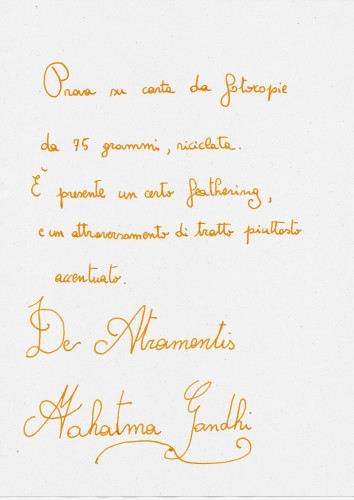 Prova su carta da fotocopie
da 75 grammi, riciclata.
È presente un certo feathering,
e un attraversamento di tratto piuttosto
accentuato.
De Atramentis
Mahatma Gandhi